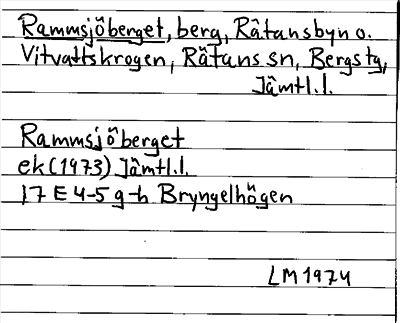 Rammsjöberget, berg, Råtansbyn o.
Vitvattskrogen, Rätans sn, Bergs tg,
Jämtl.l.
Rammsjöberget
ek (1973) Jämtl.l.
17 E 4-5 g-h Bryngelhögen
LM 1974